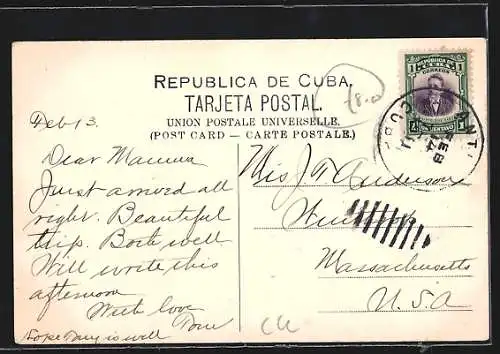 REPUBLICA DE CUBA.
TARJETA POSTAL.
UNION POSTALE UNIVERSELLE.
(POST CARD — CARTE POSTALE.)
REPUBLICA DE
CUBA
CORREOS
1 1
UN CENTAVO
CUBA
FEB
14
Feb 13.
Dear Mamma
Just arrived all
right. Beautiful
trip. Both well
Will write this
afternoon
With love
Tom
Hope Mary is well
J. F. Anderson
Massachusetts
U.S.A